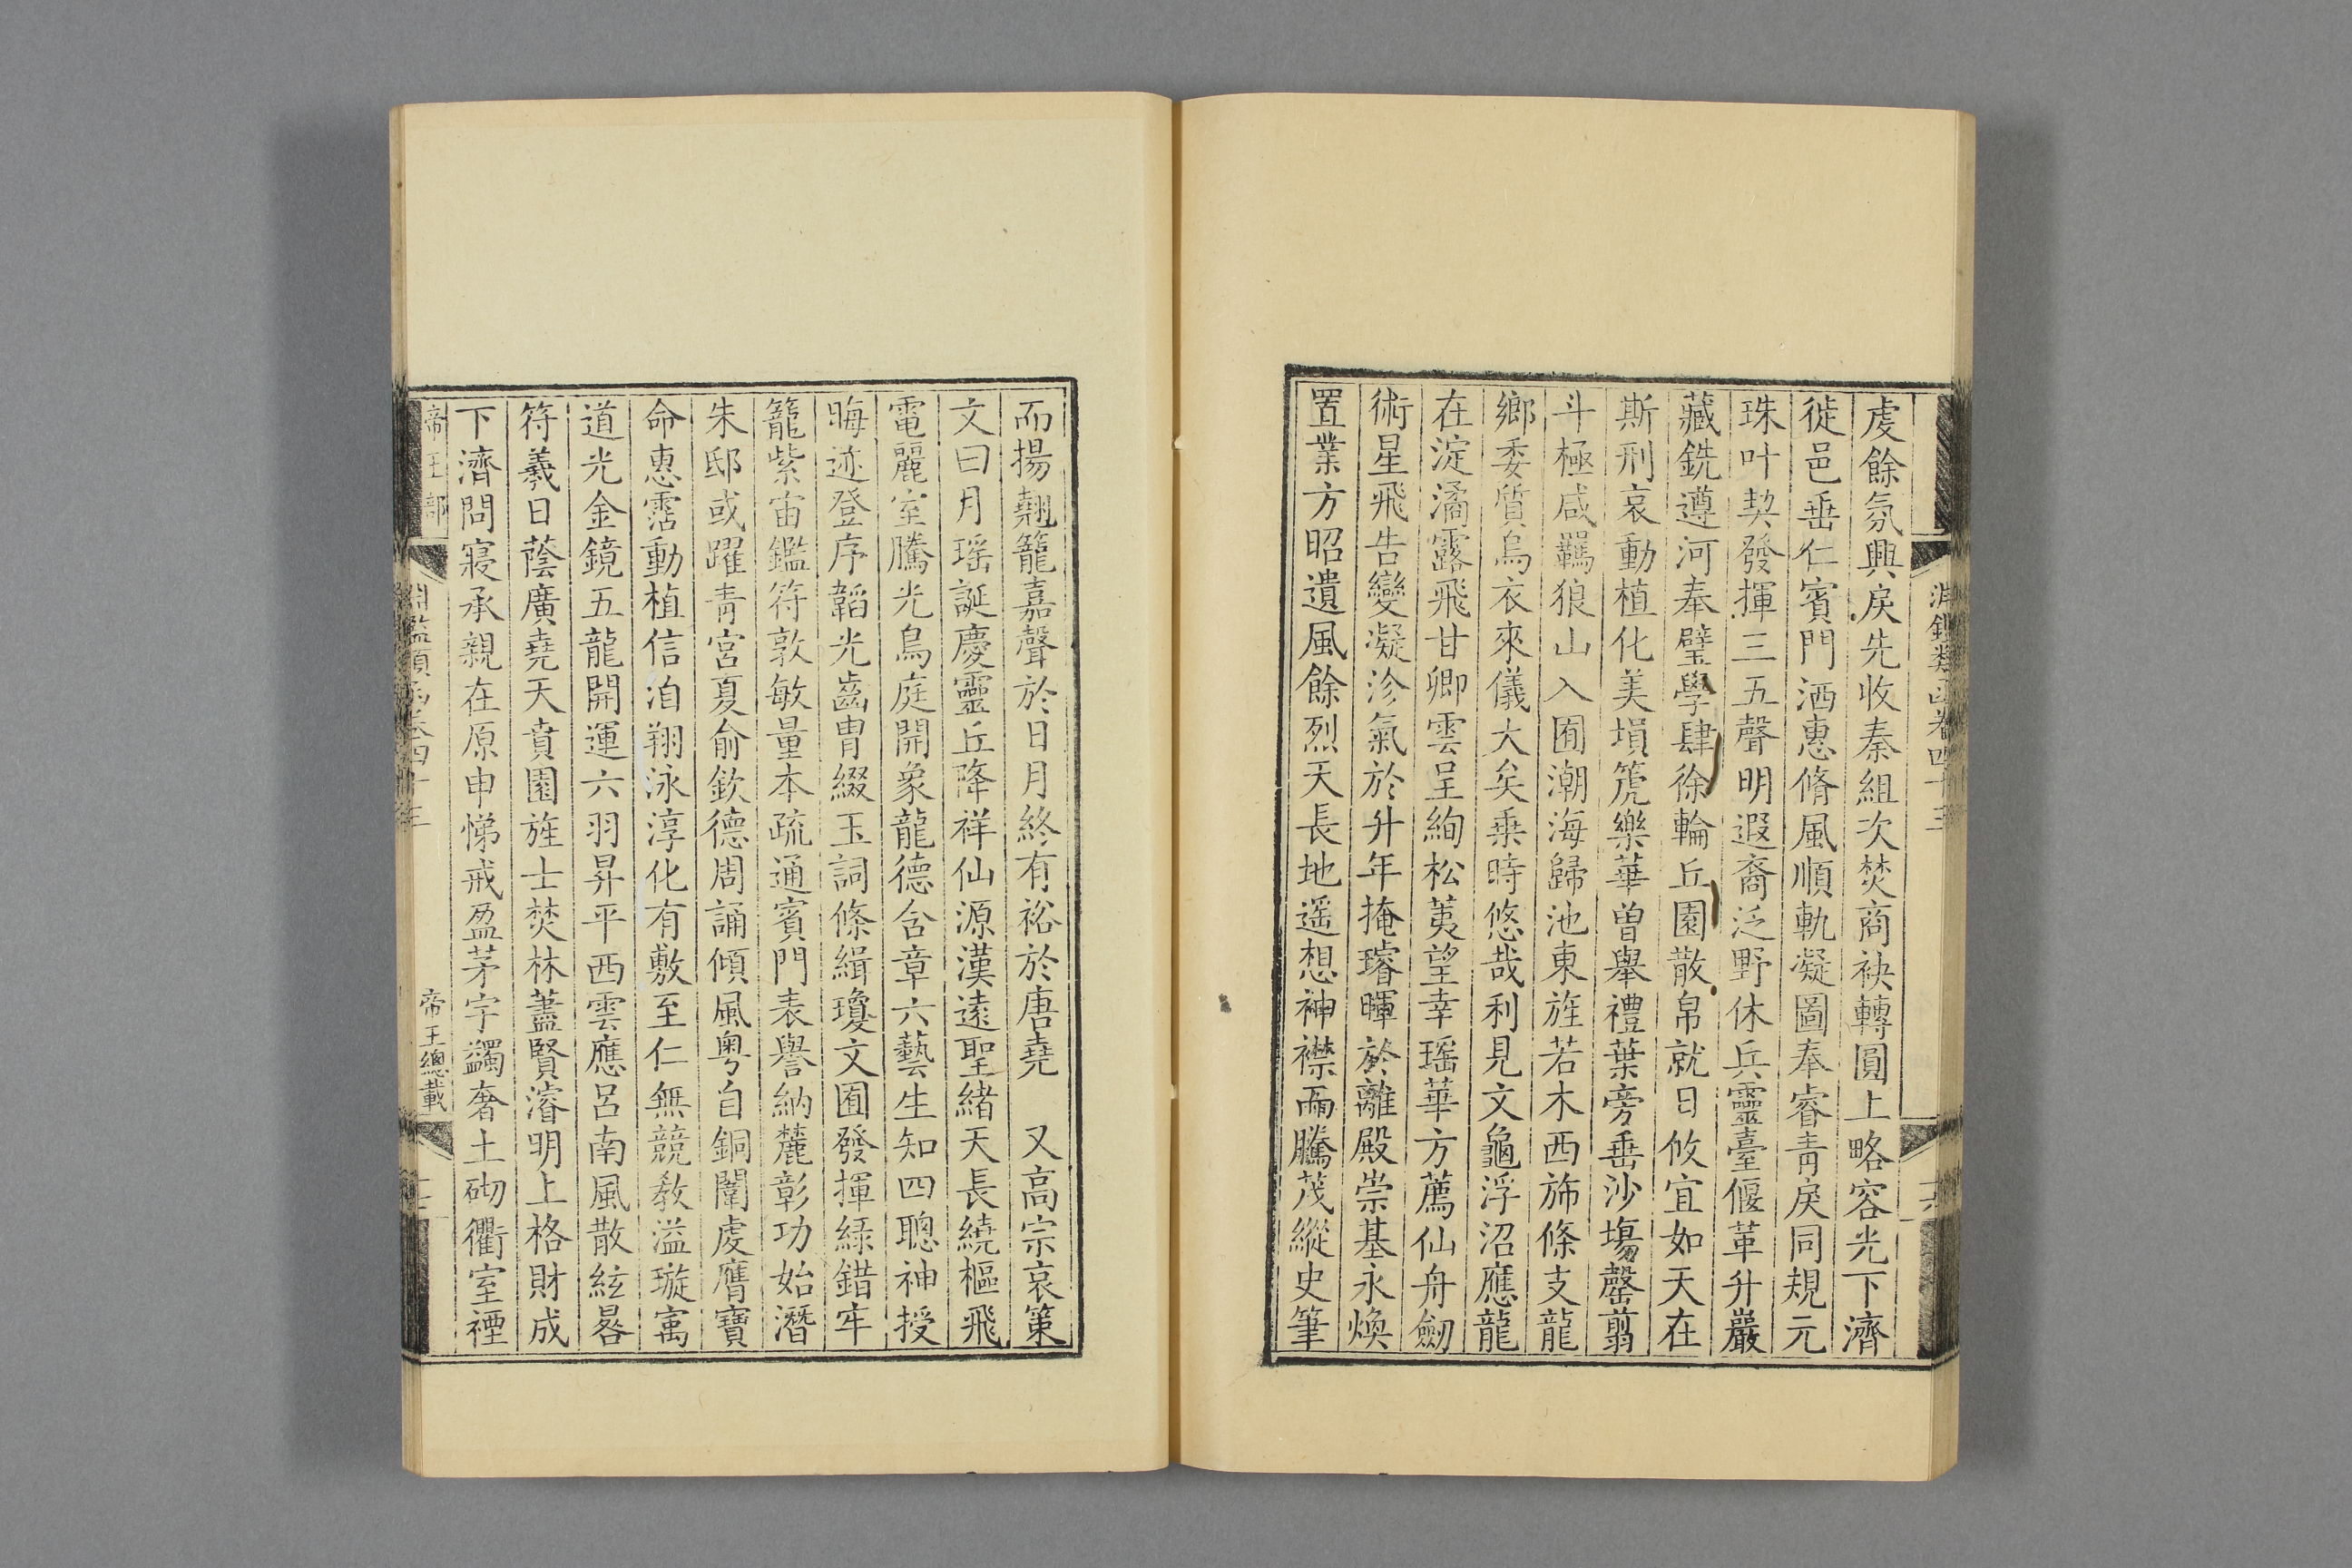 淵鑑類函卷四十三
十六
虔餘氛興戾先收秦組次焚商袂轉圓上略容光下濟
徙邑垂仁賓門洒惠脩風順軌凝圖奉睿青戾同規元
珠叶契發揮三五聲明遐裔泛野休兵靈臺偃革升巖
藏銑遵河奉璧學肆徐輪丘園散帛就日攸宜如天在
斯刑哀動植化美塤箎樂華曾舉禮葉旁垂沙塲罄翦
斗極咸羈狼山入囿潮海歸池東旌若木西斾條支龍
鄉委質鳥衣來儀大矣乗時悠哉利見文龜浮沼應龍
在淀潏露飛甘卿雲呈絢松荑望幸瑶華方薦仙舟劒
術星飛告變凝沴氣於升年掩璿暉於離殿崇基永煥
置業方昭遺風餘烈天長地遥想神襟而騰茂縱史筆
而揚翹籠嘉聲於日月終有裕於唐堯 又高宗哀策
文曰月瑶誕慶靈丘降祥仙源漢遠聖緒天長繞樞飛
電麗室騰光鳥庭開象龍德含章六藝生知四聰神授
晦迹登序韜光齒胄綴玉詞條緝瓊文囿發揮緑錯牢
籠紫宙鑑符敦敏量本疏通賓門表譽納麓彰功始潛
朱邸或躍青宮夏俞欽德周誦傾風粤自銅闈虔膺寶
命惠霑動植信洎翔泳淳化有敷至仁無競敎溢璇寓
道光金鏡五龍開運六羽昇平西雲應呂南風散絃晷
符羲日蔭廣堯天賁園旌士焚林藎賢濬明上格財成
下濟問寢承親在原申悌戒盈茅宇蠲奢土砌衢室禋
帝王部
淵鑑類函卷四十三
帝王總載